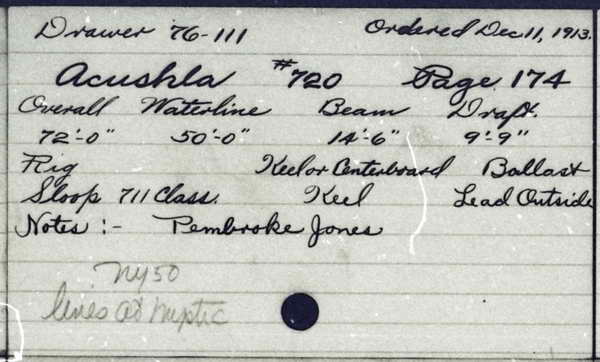 Drawer 76-111 Ordered Dec 11, 1913.
Acushla #720 Page 174
Overall Waterline Beam Draft.
72'-0" 50'-0" 14'-6" 9'-9"
Rig Keel or Centerboard Ballast
Sloop 711 Class. Keel Lead Outside
Notes :- Pembroke Jones
NY50
lines at Mystic